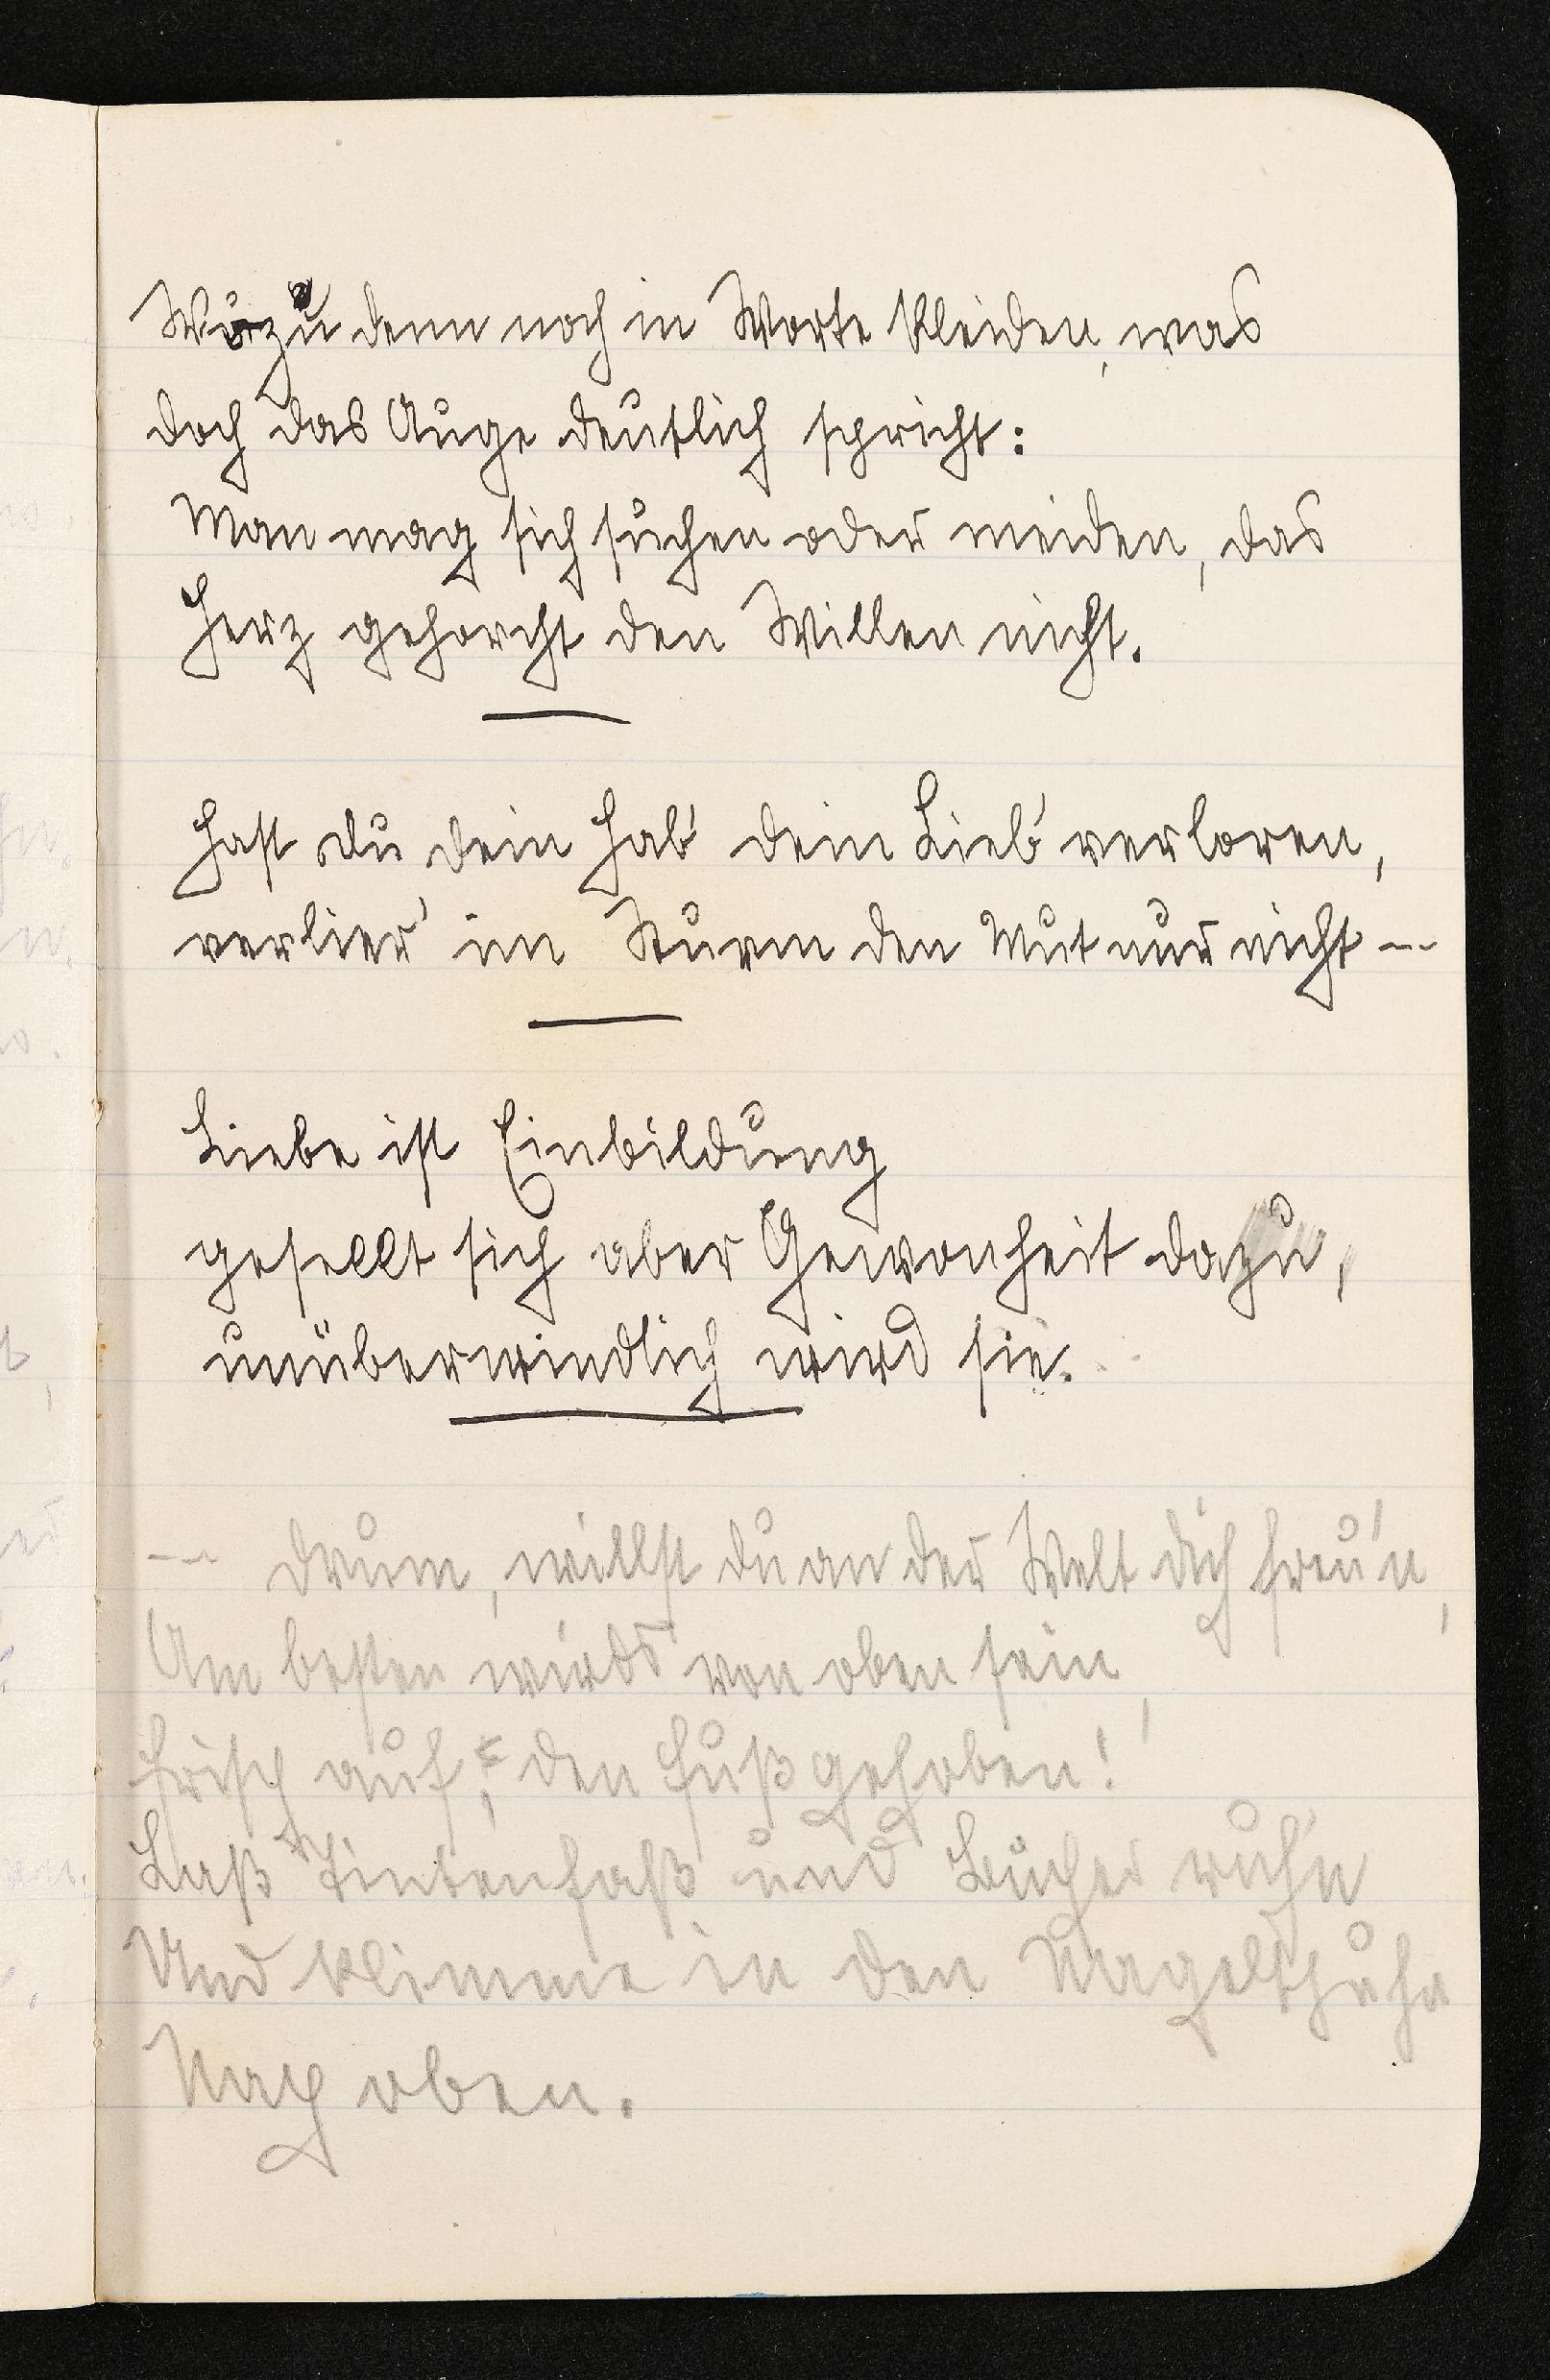 Wozu denn noch in Worte kleiden, was
doch das Auge deutlich spricht:
Man mag sich suchen oder meiden, das
Herz gehorcht den Willen nicht.
Hast du dein Hab' dein Lieb' verloren,
verlier' im Sturm den Mut nur nicht --
Liebe ist Einbildung
gesellt sich aber Gewonheit dazu,
unüberwindlich wird sie.
-- Drum, willst du an der Welt dich freu'n,
Am besten wirds von oben sein,
Frisch auf, den Fuß gehoben!
Laß Tintenfaß und Bücher ruh'n
Und klimme in den Nagelschuhn
Nach oben.